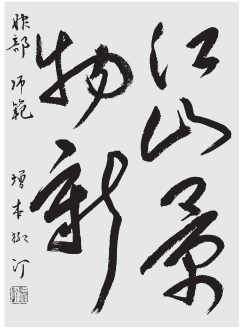 江山景
物新
部 師範 増本 汀